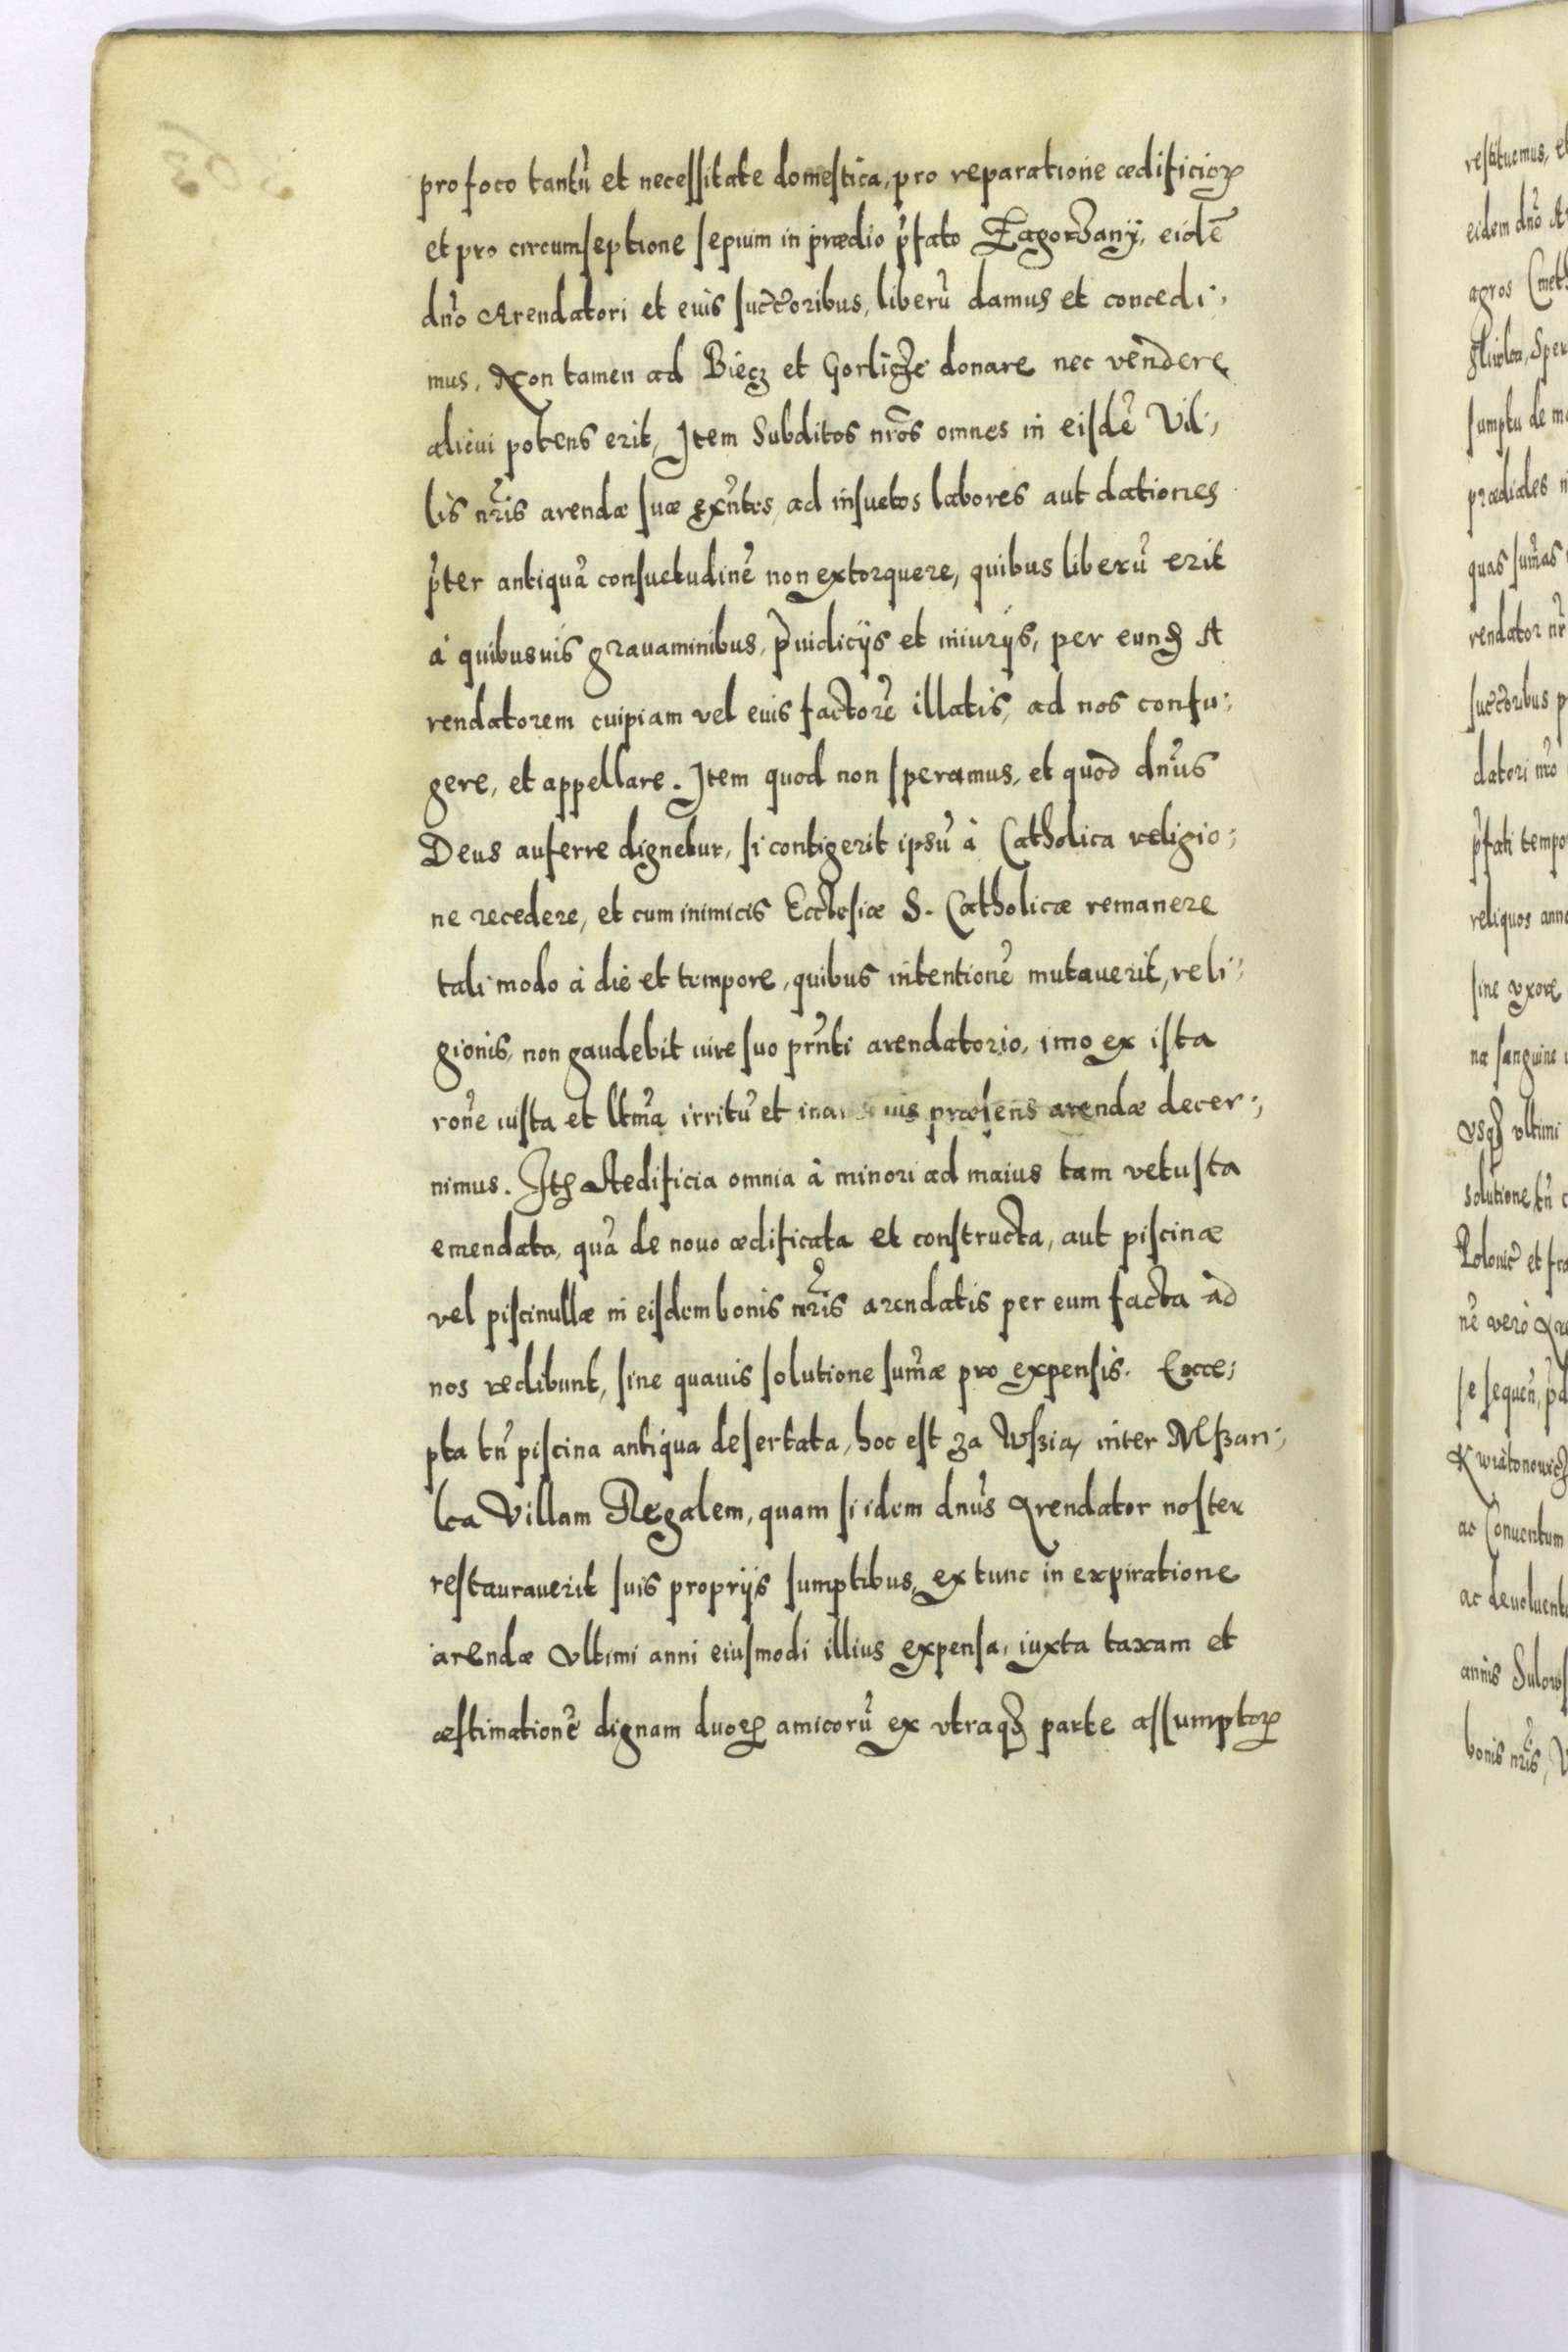 pro foco tantu᷈ et necessitate domestica, pro reparatione ædificioꝝ
et pro circumseptione sepium in prædio p᷈fato Zagorzany, eide᷈
dn᷈o Arendatori et eius succ᷈oribus, liberu᷈ damus et concedi;
mus. Non tamen ad Biecz et Gorlicze donare nec vendere
alicui potens erit, Item Subditos nr᷈os omnes in eisde᷈ Vil;
lis nr᷈is arendæ suæ ex᷈ntes, ad insuetos labores aut dationes
p᷈ter antiqua᷈ consuetudine᷈ non extorquere, quibus liberu᷈ erit
à quibusuis grauaminibus, p᷈iudicijs et iniurijs, per eunꝫ A
rendatorem cuipiam vel euis factore᷈ illatis, ad nos confu;
gere, et appellare. Item quod non speramus, et quod dn᷈us
Deus auferre dignetur, si contigerit ipsu᷈ à Catholica religio;
ne recedere, et cum inimicis Ecclesiæ S. Catholicæ remanere
tali modo à die et tempore, quibus intentione᷈ mutauerit, reli;
gionis, non gaudebit iure suo pr᷈nti arendatorio, imo ex ista
ron᷈e iusta et ltm᷈a irritu᷈ et ius præsens arendæ decer;
nimus. Itꝫ Aedificia omnia à minori ad maius tam vetusta
emendata, qua᷈ de nouo ædificata et constructa, aut piscinæ
vel piscinullæ in eisdem bonis nr᷈is arendatis per eum facta ad
nos redibunt, sine quauis solutione sum᷈æ pro expensis. Exce;
pta tn᷈ piscina antiqua desertata, hoc est za Wßia, inter Mßan;
ka Villam Regalem, quam si idem dn᷈us Arendator noster
restaurauerit suis proprijs sumptibus, ex tunc in expiratione
arendæ vltimi anni eiusmodi illius expensa, iuxta taxam et
æstimatione᷈ dignam duoꝝ amicoru᷈ ex vtraqꝫ parte assumptoꝝ
restituemus, et
eidem dn᷈o
agros
sumptu de
prædiales
quas sum᷈as
rendator nr᷈
succ᷈oribus
datori nr᷈o
p᷈fati
reliquos
sine vxore
næ sanguine
vsqꝫ vltimi
solutione tn᷈
et
ne᷈ verò
se sequen᷈
ac Conuentum
ac
annis
bonis nr᷈is,